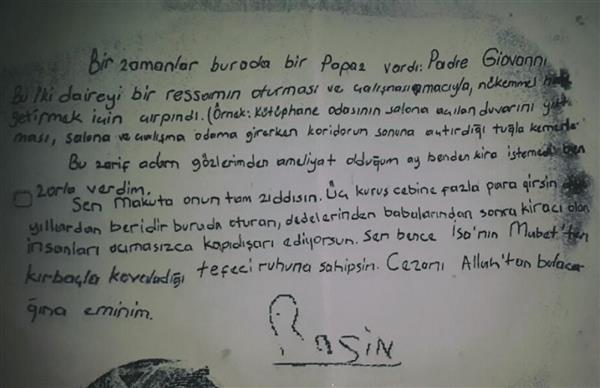 Bir zamanlar burada bir Papaz vardı: Padre Giovanni
Bu iki daireyi bir ressamın oturması ve çalışması amacıyla, mükemmel
getirmek için çırpındı. (Örnek: Kütüphane odasının salona açılan duvarını
ması, salona ve çalışma odama girerken koridorun sonuna açtırdığı tuğla kemerler
Bu zarif adam gözlerimden ameliyat olduğum ay benden kira istemedi ben
zorla verdim.
Sen Makuta onun tam zıddısın. Üç kuruş cebine fazla para girsin
yıllardan beridir burada oturan, dedelerinden babalarından sonra kiracı olan
insanları acımasızca kapıdışarı ediyorsun. Sen bence İsa'nın Mabet'ten
kırbaçla kovaladığı tefeci ruhuna sahipsin. Cezanı Allah'tan bulaca-
ğına eminim.
Rasin